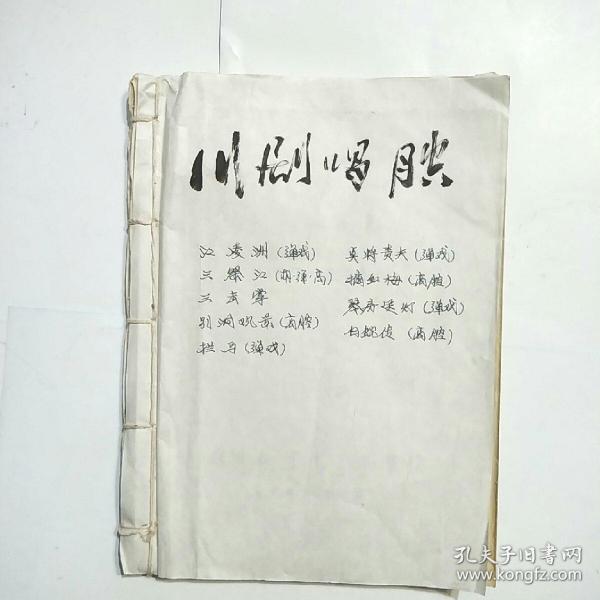 川剧唱腔
江凌洲(弹戏)
三祭江(胡弹高)
三击掌
别洞观景(高腔)
拦马(弹戏)
莫将贵夫(弹戏)
摘红梅(高腔)
琴房送灯(弹戏)
白蛇传(高腔)
孔夫子旧书网
www.kongfz.com